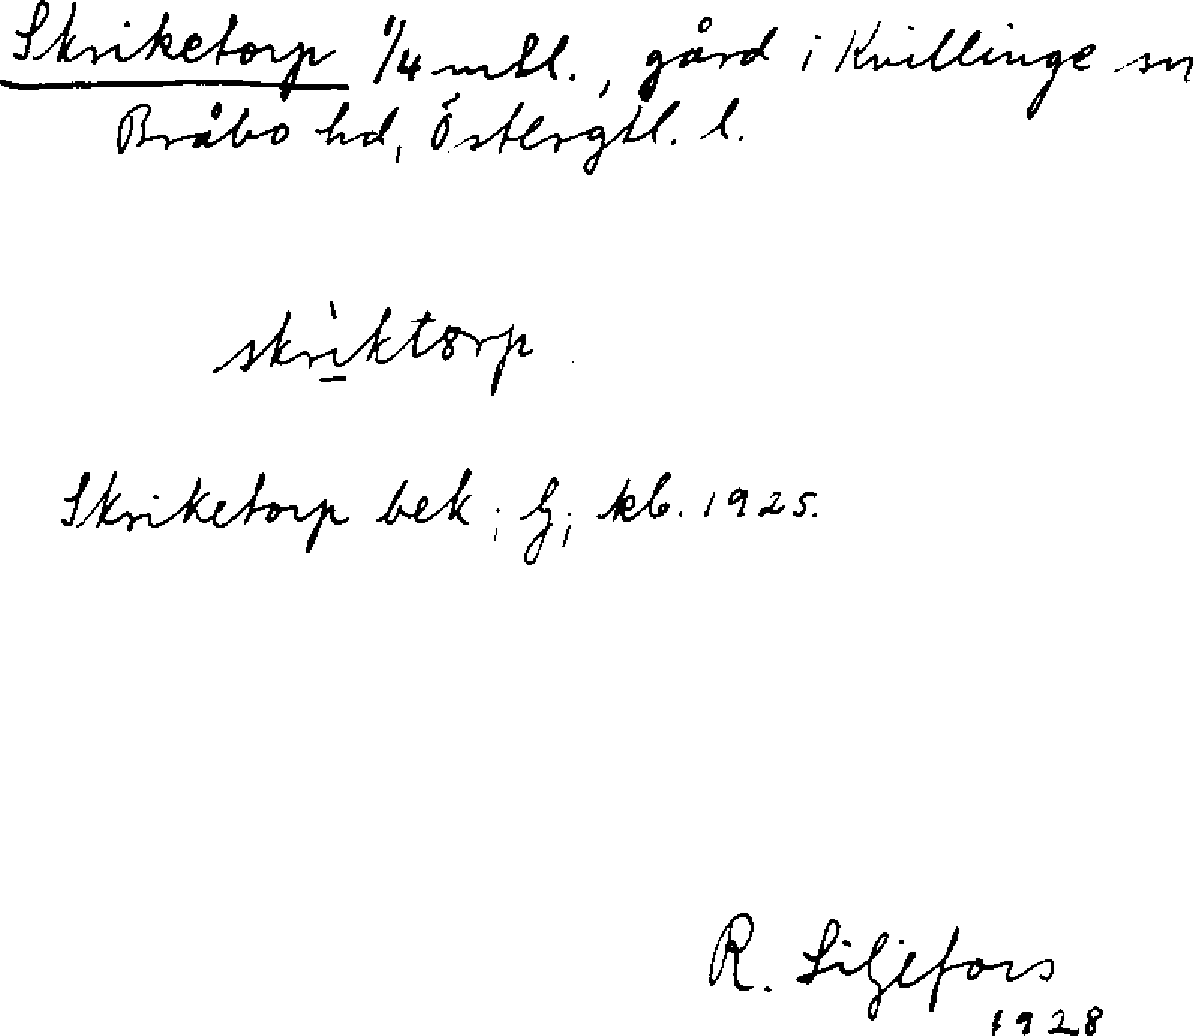 Skriketorp 1/4 mtl., gård i Kvillinge sn
Bråbo hd, Östergtl. l.
skrìktorp
Skriketorp bek; Gj; kb. 1925.
R. Liljefors
1928